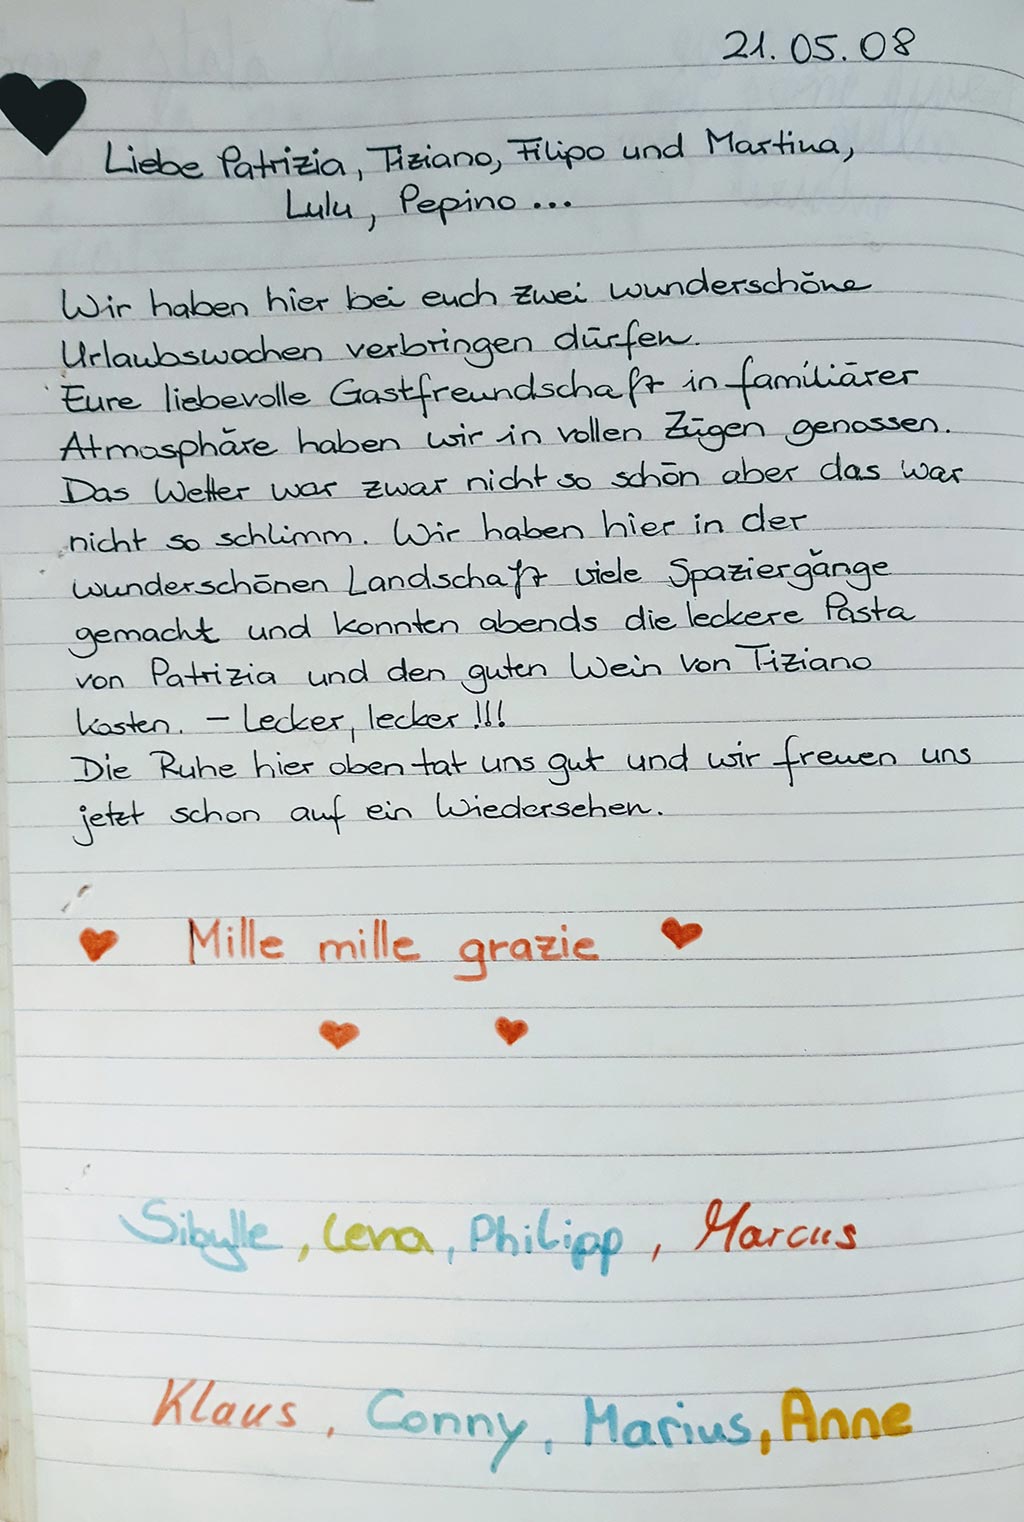 21.05.08
Liebe Patrizia, Tiziano, Filipo und Martina,
Lulu, Pepino ...
Wir haben hier bei euch zwei wunderschöne
Urlaubswochen verbringen dürfen.
Eure liebevolle Gastfreundschaft in familiärer
Atmosphäre haben wir in vollen Zügen genossen.
Das Wetter war zwar nicht so schön aber das war
nicht so schlimm. Wir haben hier in der
wunderschönen Landschaft viele Spaziergänge
gemacht und konnten abends die leckere Pasta
von Patrizia und den guten Wein von Tiziano
kosten. - Lecker, lecker !!!
Die Ruhe hier oben tat uns gut und wir freuen uns
jetzt schon auf ein Wiedersehen.
Mille mille grazie
Sibylle, Lena, Philipp, Marcus
Klaus, Conny, Marius, Anne